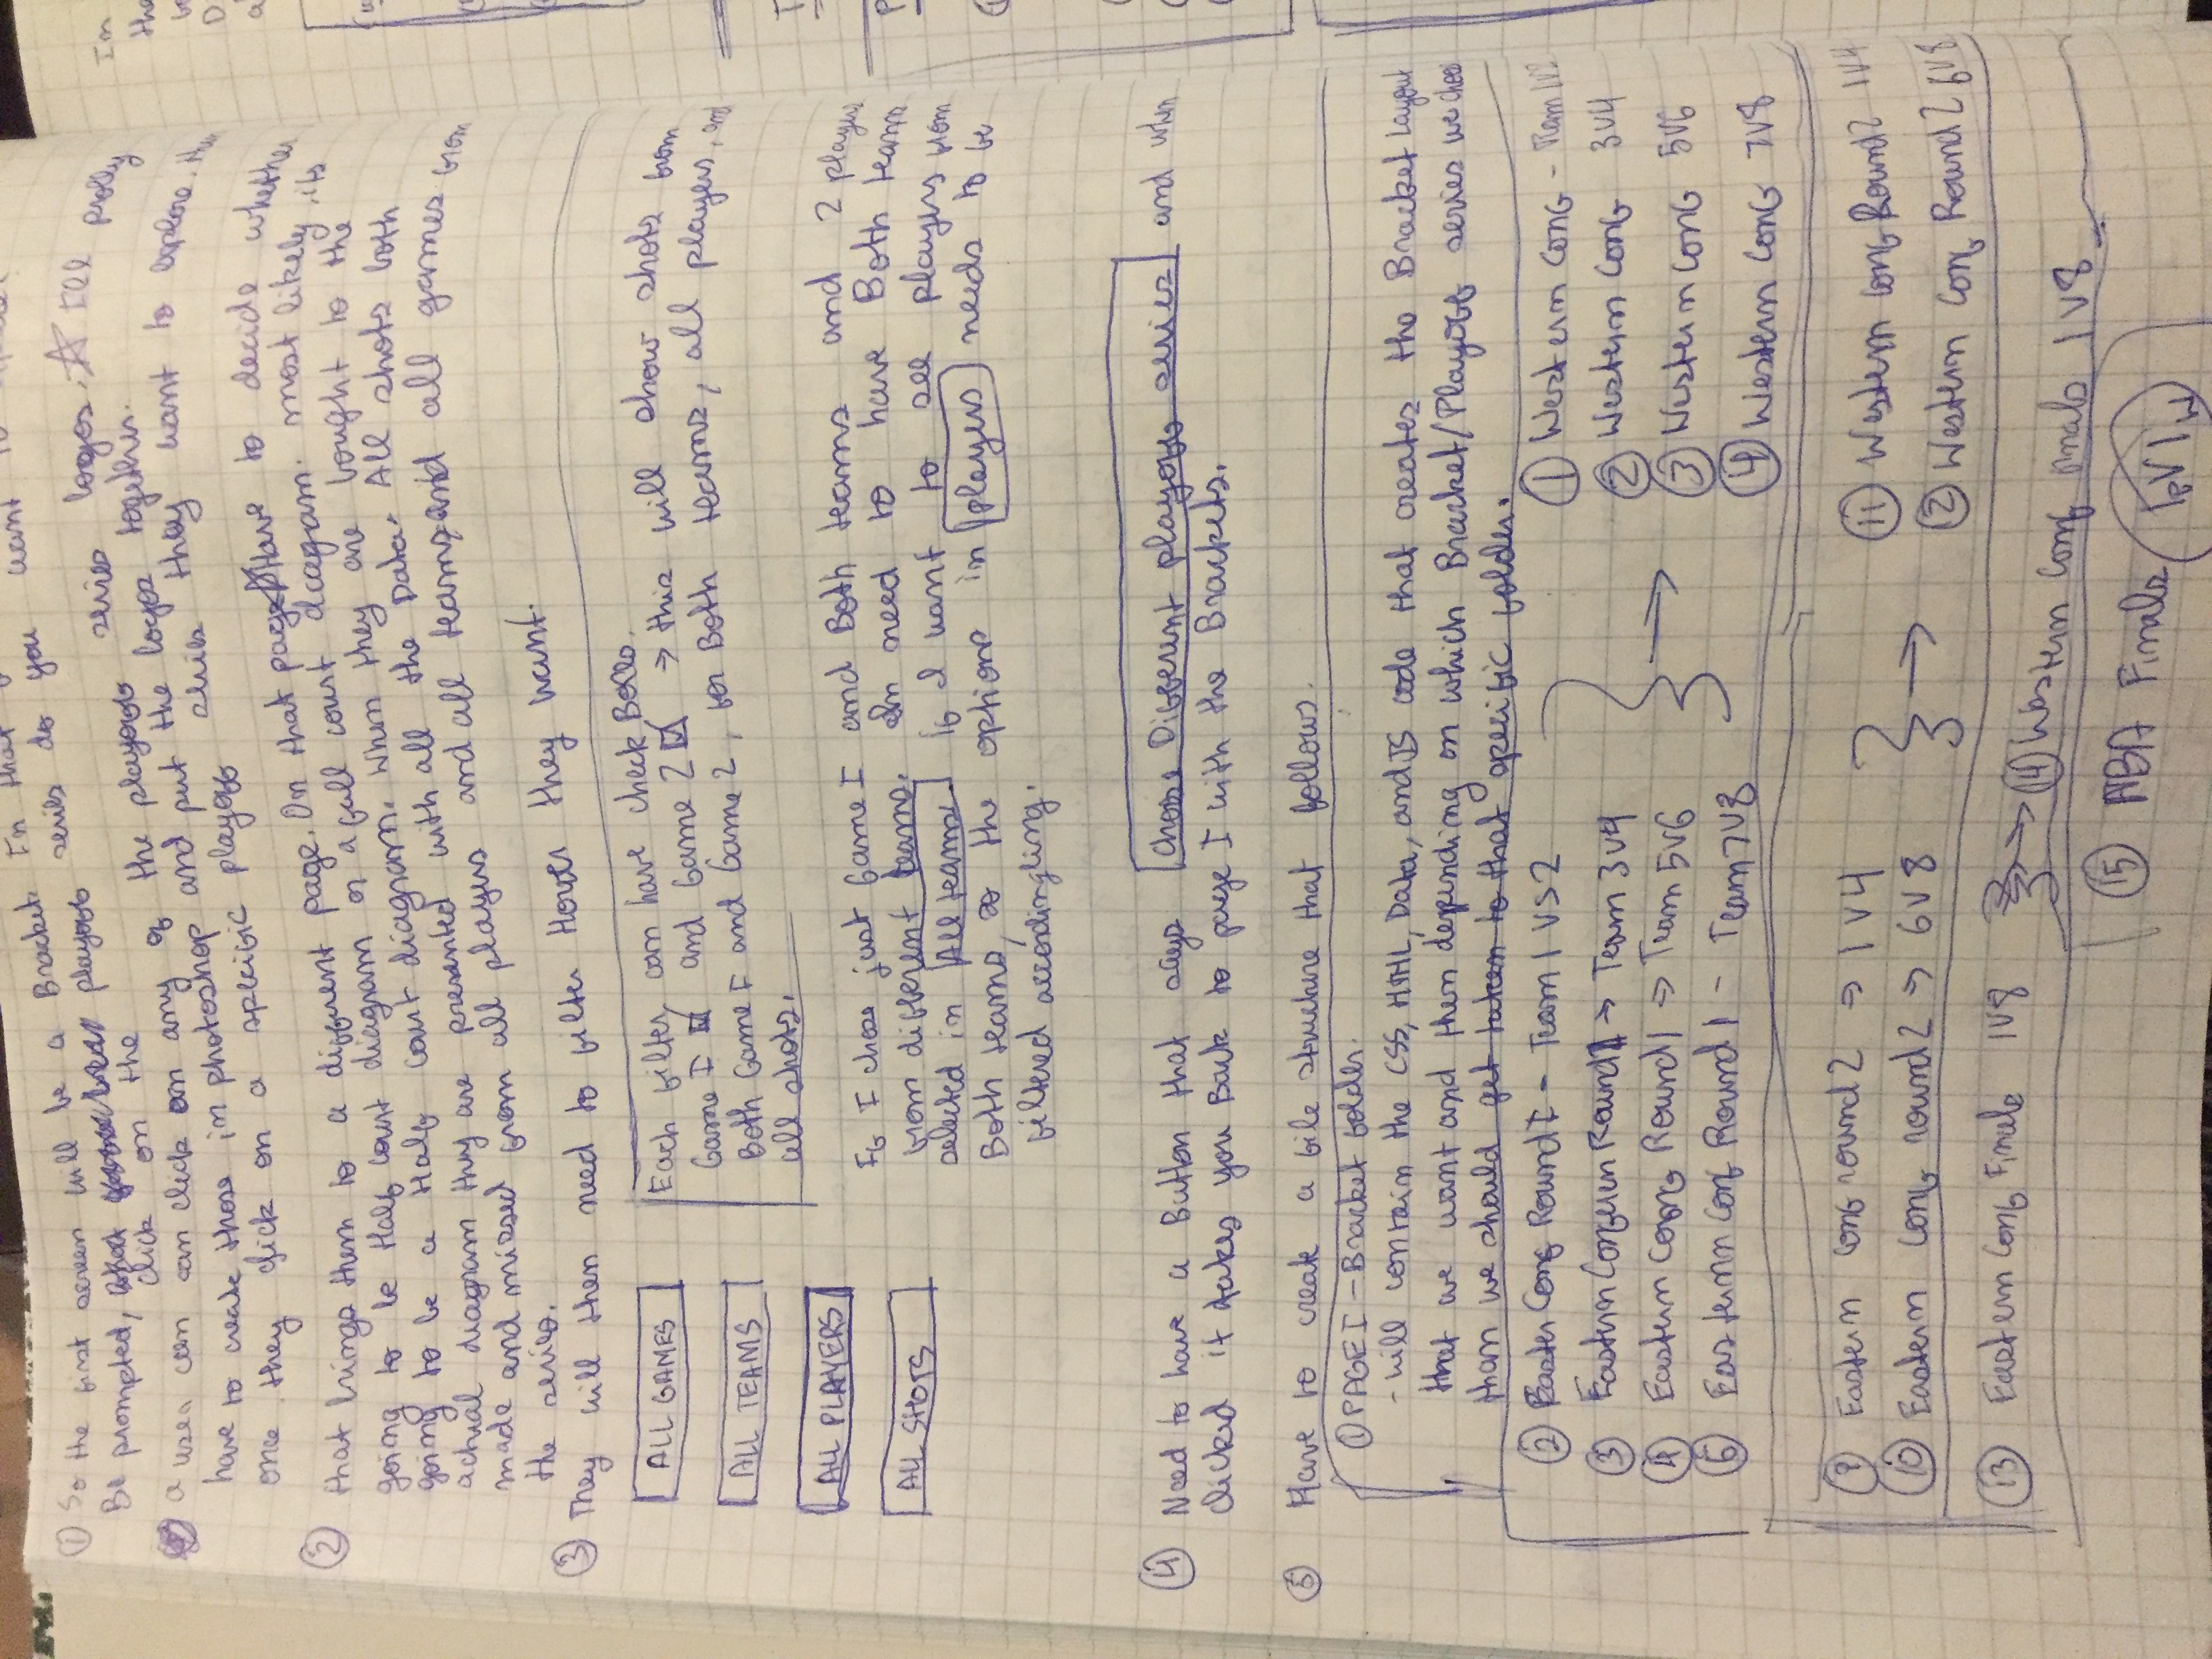 ① So the first screen will be a Bracket. In that
Be prompted, what playoff series do you want to
click on the
a user can can click on any of the playoff series logos. ☆ Ill prolly
have to create those in photoshop and put the logos together.
once they click on a specific playoff series they want to explore. then
② that brings them to a different page. On that page ☆ Have to decide whether
going to be Half court diagram or a full court diagram. most likely its
going to be a Half court diagram. When they are bought to the
actual diagram they are presented with all the Data. All shots both
made and missed from all players and all teams, and all games from
the series.
③ They will then need to filter However they want.
ALL GAMES
ALL TEAMS
ALL PLAYERS
ALL SHOTS
Each filter can have check Boxes.
Game I ☑ and Game 2 ☑ → this will show shots from
Both Game I and Game 2, for Both teams, all players, and
all shots.
If I chose just Game I and Both teams and 2 players
from different teams. Im need to have Both teams
selected in All teams if I want to see players from
Both teams, so the options in players needs to be
filtered accordingling.
④ Need to have a Button that says Choose Different playoff series and when
clicked it takes you Back to page I with the Brackets.
⑤ Have to create a file structure that follows.
① PAGE I - Bracket folder.
- will contain the CSS, HTML, Data, and JS code that creates the Bracket Layout
that we want and then depending on which Bracket/Playoff series we choose
than we should get taken to that specific folder.
② Easter Conf Round I - Team 1 VS 2
③ Eastern Conferen Round 1 → Team 3v4
④ Eastern Conf Round 1 → Team 5v6
⑤ Easternn Conf Round 1 - Team 7v8
① Western Conf - Team 1v2
② Western Conf 3v4
③ Western Conf 5v6
④ Western Conf 7v8
⑨ Eastern Conf round 2 → 1v4
⑩ Eastern Conf round 2 → 6v8
⑪ Western Conf Round 2 1v4
⑫ Western Conf Round 2 6v8
⑬ Eastern Conf Finals 1v8
⑭ Western Conf Finals 1v8
⑮ NBA Finals